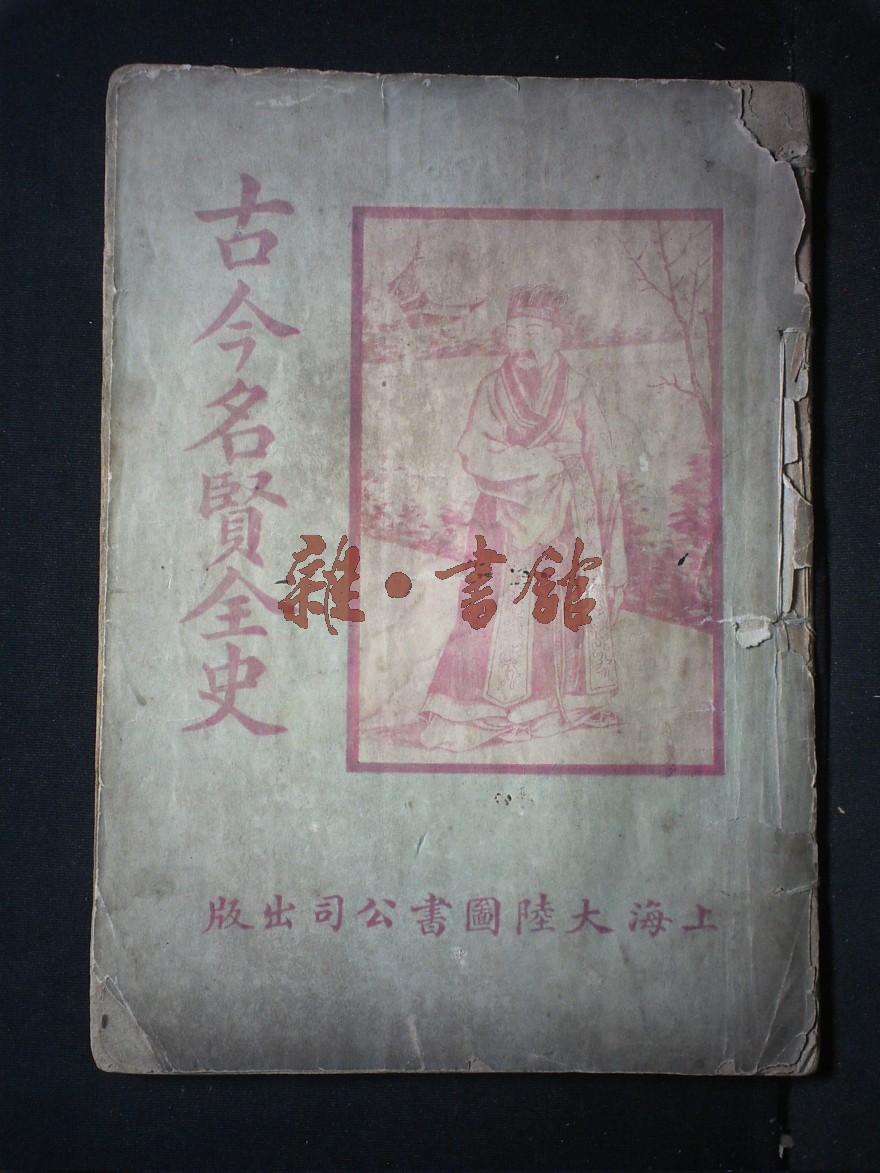 古今名賢全史
雜·書館
上海大陸圖書公司出版